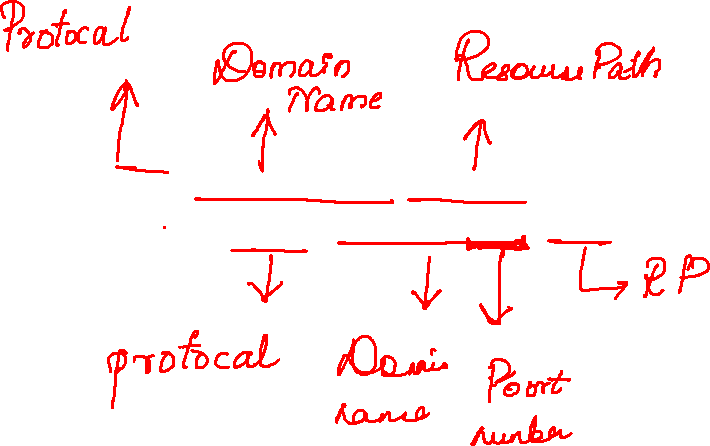 Protocal
Domain
Name
Resource Path
RP
protocal
Domain
name
Poort
number